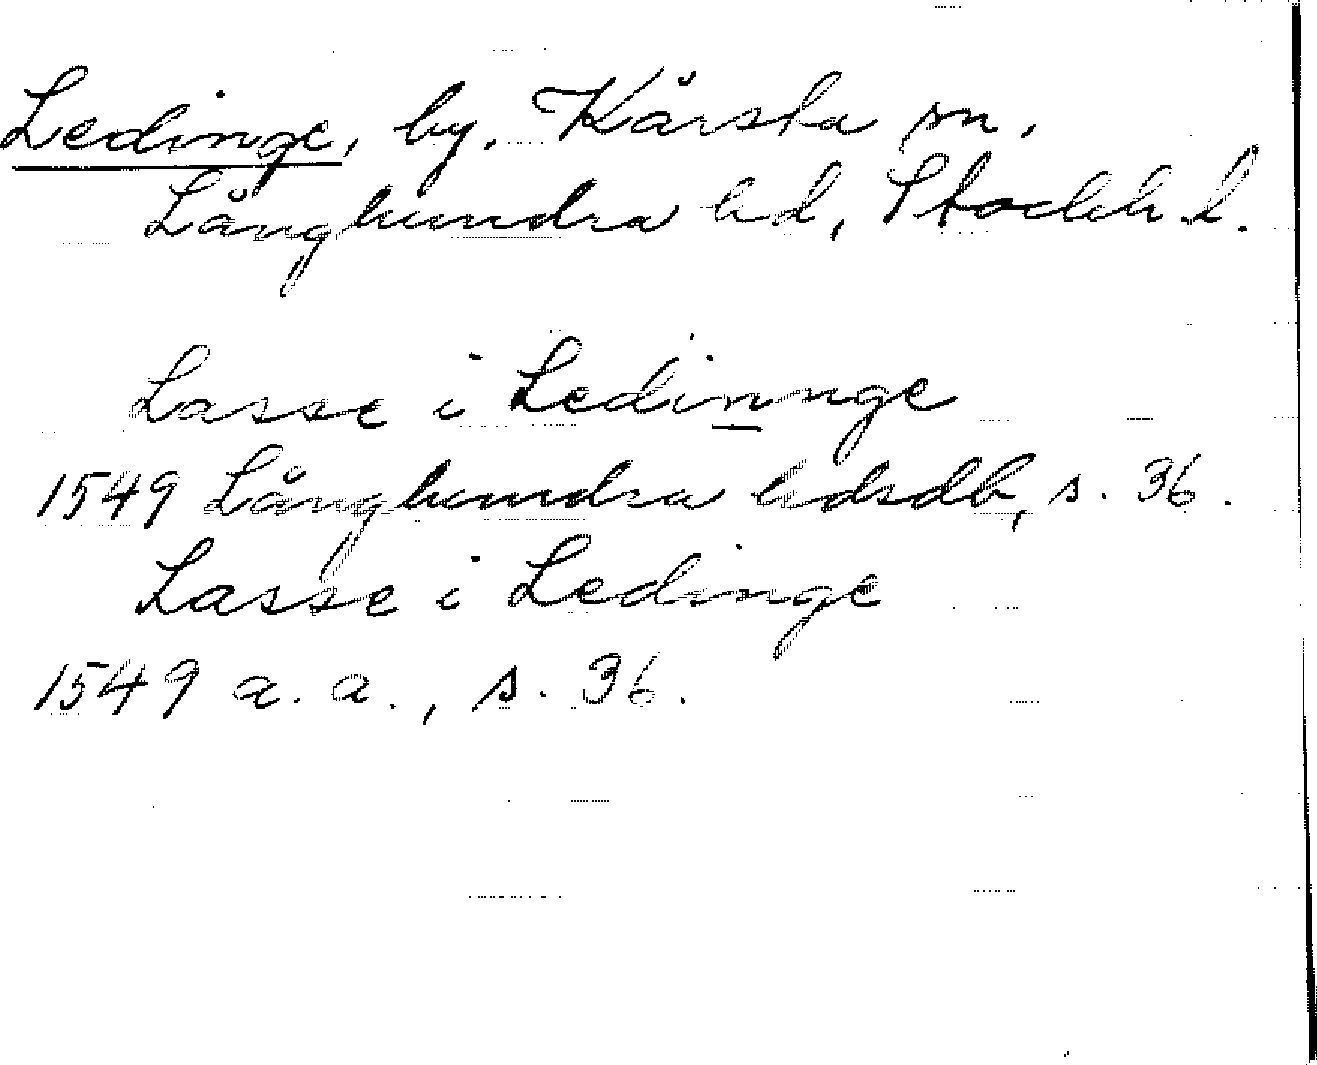 Ledinge, by, Kårsta sn,
Långhundra hd, Stockh. l.
Lasse i Ledinnge
1549 Långhundra hdrdb, s. 36.
Lasse i Ledinge
1549 a. a., s. 36.